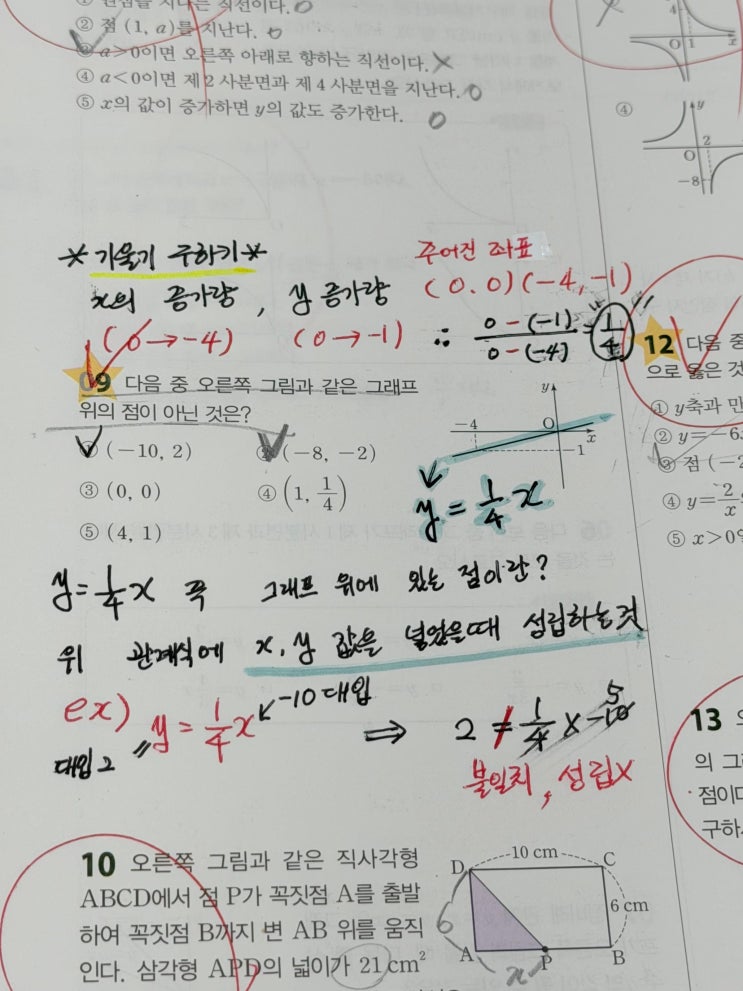 ② 점 (1, a)를 지난다. o
③ a>0이면 오른쪽 아래로 향하는 직선이다. ×
④ a<0이면 제2사분면과 제4사분면을 지난다. o
⑤ x의 값이 증가하면 y의 값도 증가한다. o
*기울기 구하기*
x의 증가량, y 증가량
(0→-4) (0→-1)
주어진 좌표
(0.0)(-4,-1)
∴ 0-(-1)/0-(-4) = 1/4
09 다음 중 오른쪽 그림과 같은 그래프
위의 점이 아닌 것은?
① (-10, 2) ② (-8, -2)
③ (0, 0) ④ (1, 1/4)
⑤ (4, 1)
y
-4 O x
-1
y=1/4x
y=1/4x 꼭 그래프 위에 있는 점이란?
위 관계식에 x, y 값을 넣었을때 성립하는것
ex) y=1/4x ↙-10 대입 ⇒ 2≠1/4×-10 5
대입2
불일치, 성립X
10 오른쪽 그림과 같은 직사각형
ABCD에서 점 P가 꼭짓점 A를 출발
하여 꼭짓점 B까지 변 AB 위를 움직
인다. 삼각형 APD의 넓이가 21 cm²
D 10 cm C
6 6 cm
A x P B
4
O 1 x
④ y
2
O
-8
12 다음 중
으로 옳은 것
① y축과 만
② y=-6
③ 점 (-2
④ y=2/x
⑤ x>0
13
의 그
점이
구하